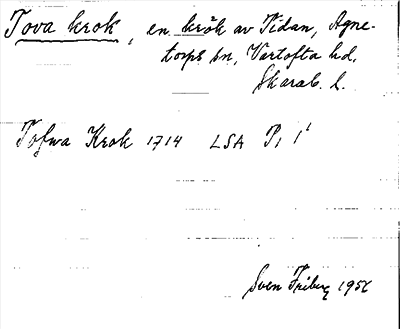 Tova krok, en krök av Tidan, Agne-
torps sn, Vartofta hd,
Skarab. l.
Tofwa Krok 1714 LSA P, 1¹
Sven Friberg 195